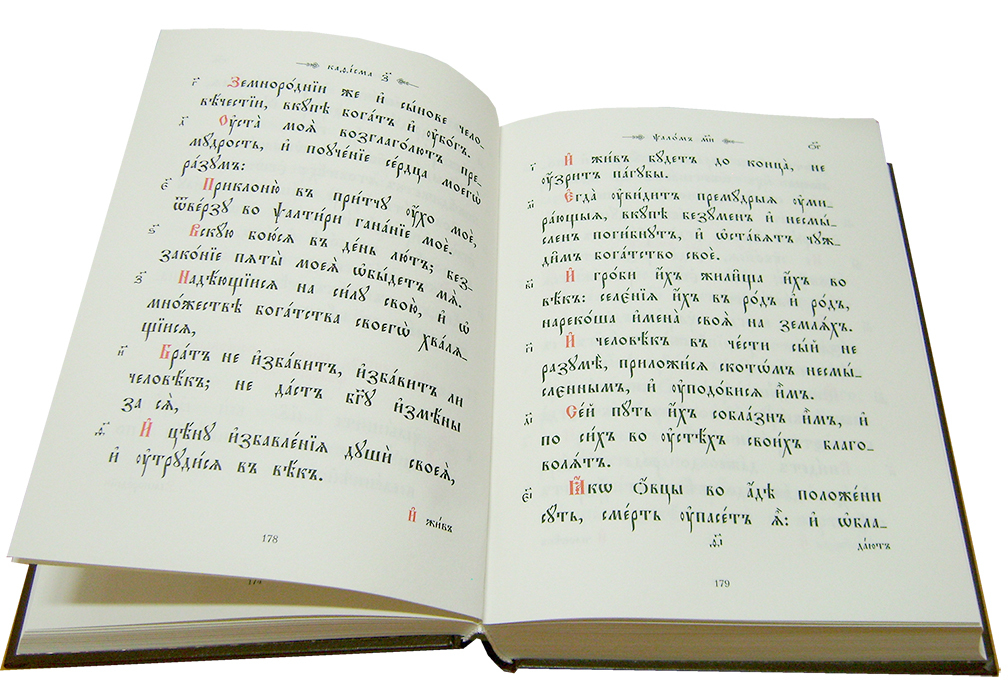 каѳісма з҃
г҃ Земноро́дніи же и҆ сы́нове чело-
вѣ́честіи, вкꙋ́пѣ бога́тъ и҆ ᲂу҆бо́гъ.
д҃ Оу҆ста̀ моѧ̑ возглаго́лютъ пре-
мꙋ́дрость, и҆ поꙋче́ніе се́рдца моегѡ̀
ра́зꙋмъ:
є҃ Приклоню̀ въ при́тчꙋ ᲂу҆́хо моѐ,
ѿве́рзꙋ во ѱалти́ри гана́ніе моѐ.
ѕ҃ Вскꙋ́ю бою́сѧ въ де́нь лю́тъ; без-
зако́ніе пѧты̀ моеѧ̀ ѡ҆бы́детъ мѧ̀.
з҃ Надѣ́ющіисѧ на си́лꙋ свою̀, и҆ ѡ҆
мно́жествѣ бога́тства своегѡ̀ хва́лѧ-
щіисѧ,
и҃ Бра́тъ не и҆зба́витъ, и҆зба́витъ ли
человѣ́къ; не да́стъ бг҃ꙋ и҆змѣ́ны
за сѧ̀,
ѳ҃ И҆ цѣ́нꙋ и҆збавле́нїѧ дꙋшѝ своеѧ̀,
и҆ ᲂу҆трꙋди́сѧ въ вѣ́къ.
И҆ жи́въ
178
174
ѱало́мъ м҃и
о҃г
і҃ И҆ жи́въ бꙋ́детъ до конца̀, не
ᲂу҆́зритъ па́гꙋбы.
а҃і Е҆гда̀ ᲂу҆ви́дитъ премꙋ́дрыѧ ᲂу҆ми-
ра́ющыѧ, вкꙋ́пѣ безꙋ́менъ и҆ несмы́-
сленъ поги́бнꙋтъ, и҆ ѡ҆ста́вѧтъ чꙋж-
ди̑мъ бога́тство своѐ.
в҃і И҆ гро́би и҆́хъ жили̑ща и҆́хъ во
вѣ́къ: селє́нїѧ и҆́хъ въ ро́дъ и҆ ро́дъ,
нареко́ша и҆мена̀ своѧ̑ на землѧ́хъ.
г҃і И҆ человѣ́къ въ че́сти сы́й не
разꙋмѣ̀, приложи́сѧ ското́мъ несмы́-
слєннымъ, и҆ ᲂу҆подо́бисѧ и҆̀мъ.
д҃і Се́й пꙋ́ть и҆́хъ собла́знъ и҆̀мъ, и҆
по си́хъ во ᲂу҆стѣ́хъ свои́хъ благо-
волѧ́тъ.
є҃і Ꙗ҆́кѡ ѻ҆́вцы во а҆́дѣ положе́ни
сꙋ́ть, сме́рть ᲂу҆пасе́тъ ѧ҆̀: и҆ ѡ҆бла-
ѳ҃і
да́ютъ
179